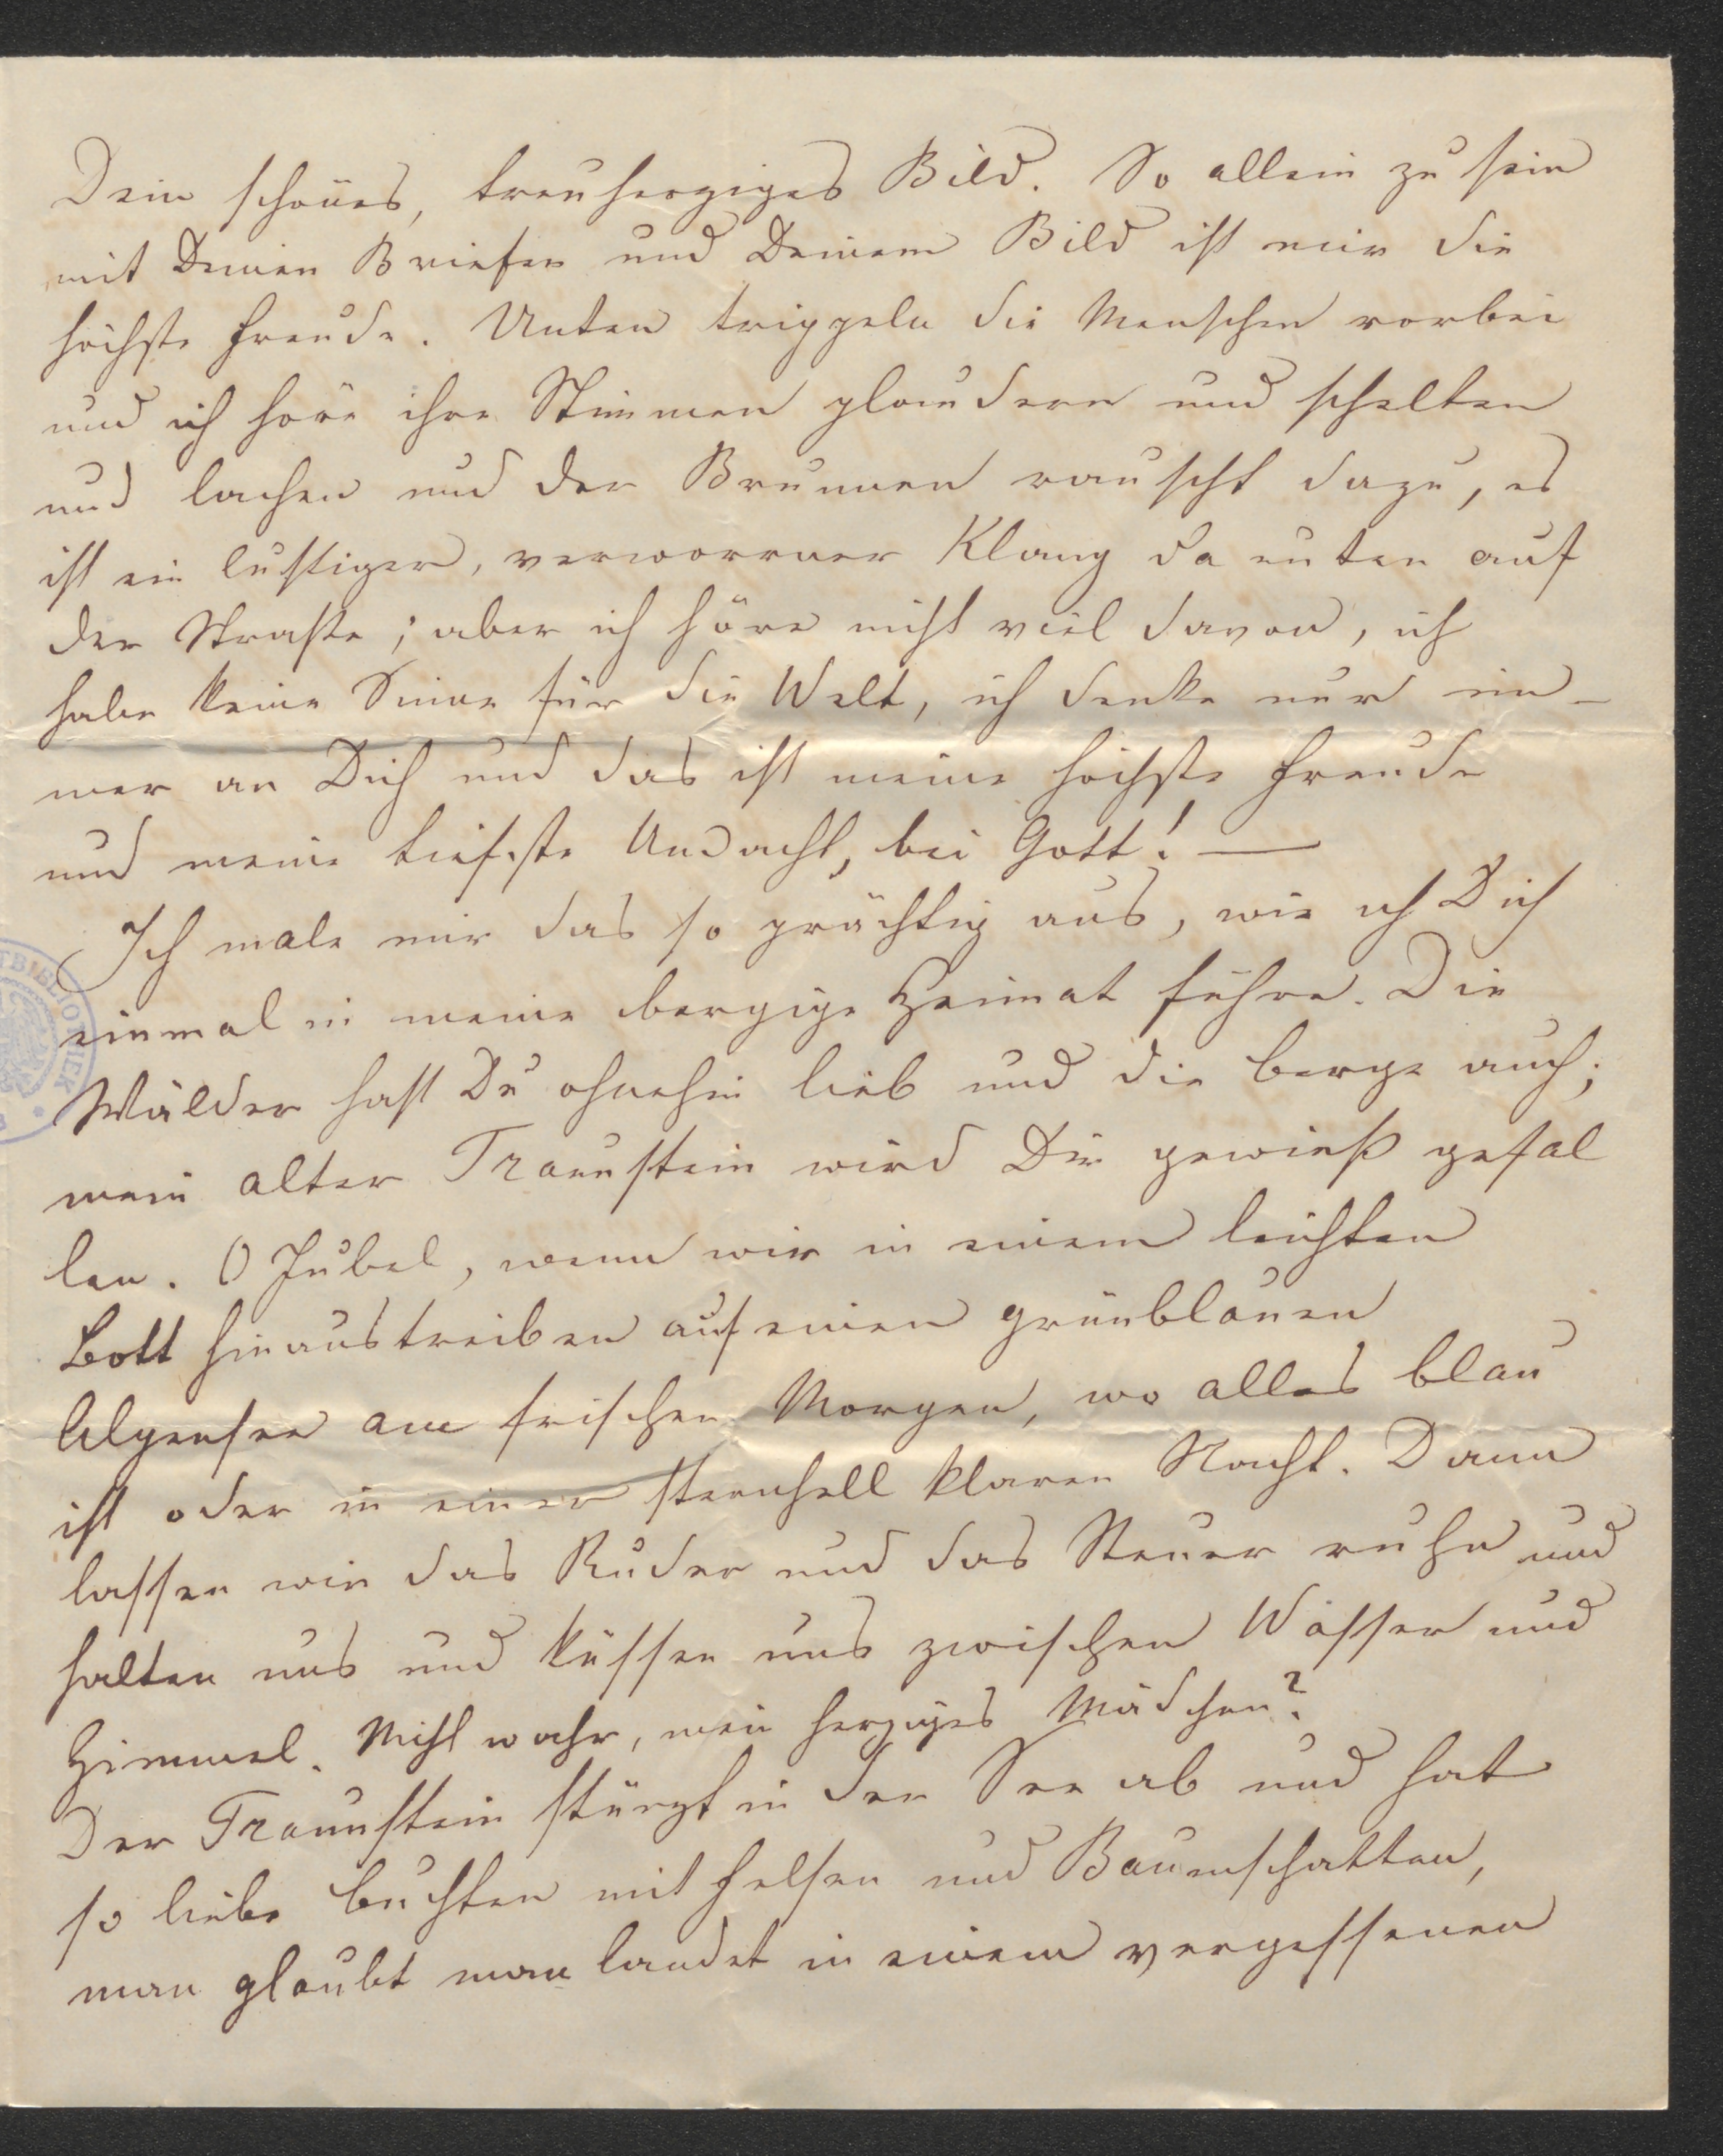 Dein schönes, treuherziges Bild. So allein zu sein
mit Deinen Briefen und Deinem Bild ist mir die
höchste Freude. Unten trippeln die Menschen vorbei
und ich höre ihre Stimmen plaudern und schelten
und lachen und der Brunnen rauscht dazu, es
ist ein lustiger, verworrner Klang da unten auf
der Straße; aber ich höre nicht viel davon, ich
habe keine Sinne für die Welt, ich denke nur im-
mer an Dich und das ist meine höchste Freude
und meine tiefste Andacht, bei Gott! —
Ich male mir das so prächtig aus, wie ich Dich
einmal in meine bergige Heimat führe. Die
Wälder hast Du ohnehin lieb und die Berge auch;
mein alter Traunstein wird Dir gewiß gefal
len. O Jubel, wenn wir in einem leichten
Bott hinaustreiben auf einen grünblauen
Alpensee am frischen Morgen, wo alles blau
ist oder in einer sternhell klaren Nacht. Dann
lassen wir das Ruder und das Steuer ruhn und
halten uns und küssen uns zwischen Wasser und
Himmel. Nicht wahr, mein herziges Mädchen?
Der Traunstein stürzt in den See ab und hat
so liebe Buchten mit Felsen und Baumschatten,
man glaubt man landet in einem vergessenen
TBIBLIOTHEK